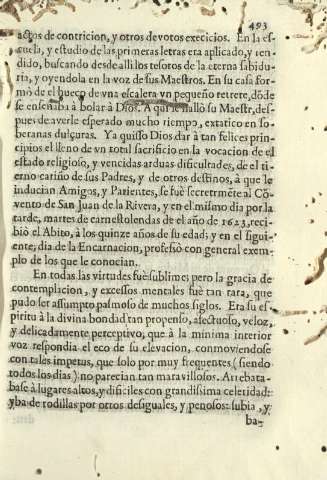 493
actos de contricion, y otros devotos execicios. En la es-
cuela, y estudio de las primeras letras era aplicado, y ren-
dido, buscando desde alli los tesoros de la eterna sabidu-
ria, y oyendola en la voz de sus Maestros. En su casa for-
mò de el hueco de vna escalera vn pequeño retrete, dõde
se enseñaba à bolar à Dios. A qui le hallò su Maestr, des-
pues de averle esperado mucho riempo, extatico en so-
beranas dulçuras. Ya quisso Dios dar à tan felices prin-
cipios el lleno de vn total sacrificio en la vocacion de el
estado religioso, y vencidas arduas dificultades, de el ti-
erno cariño de sus Padres, y de otros destinos, à que le
inducian Amigos, y Parientes, se fuè secretrmēte al Cõ-
vento de San Juan de la Rivera, y en el mismo dia por la
tarde, martes de carnestolendas de el año de 1623, reci-
biò el Abito, à los quinze años de su edad; y en el sigui-
ente, dia de la Encarnacion, professò con general exem-
plo de los que le conocian.
En todas las virtudes fuè sublime; pero la gracia de
contemplacion, y excessos mentales fuè tan rara, que
pudo ser assumpto pasmoso de muchos siglos. Era su es-
piritu à la divina bondad tan propenso, afectuoso, veloz,
y delicadamente perceptivo, que à la minima interior
voz respondia el eco de su elevacion, conmoviendose
con tales impetus, que solo por muy frequentes (siendo
todos los dias) no parecian tan maravillosos. Arrebata-
base à lugares altos, y dificiles con grandissima celeridad:
yba de rodillas por otros desiguales, y penosos: subia, y
ba-